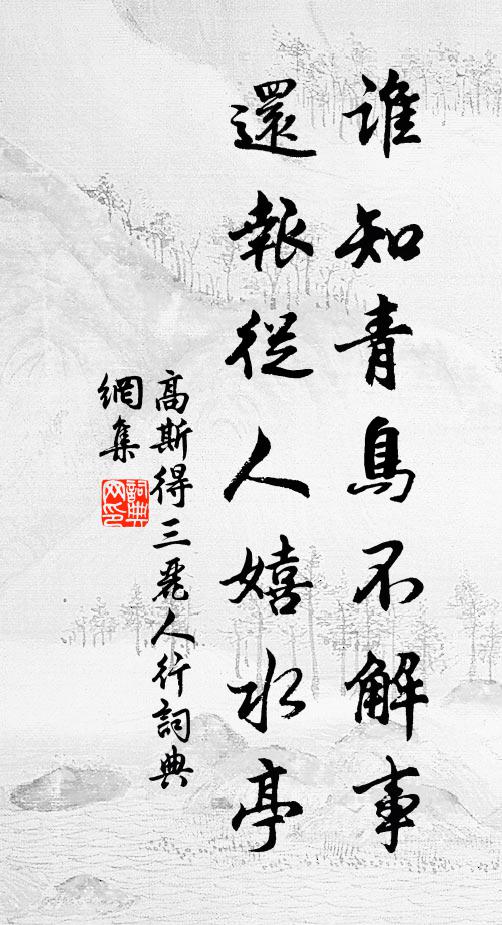 誰知青鳥不解事
還報從人嬉水亭
高斯得三麗人行詞典
網集
詞典網印